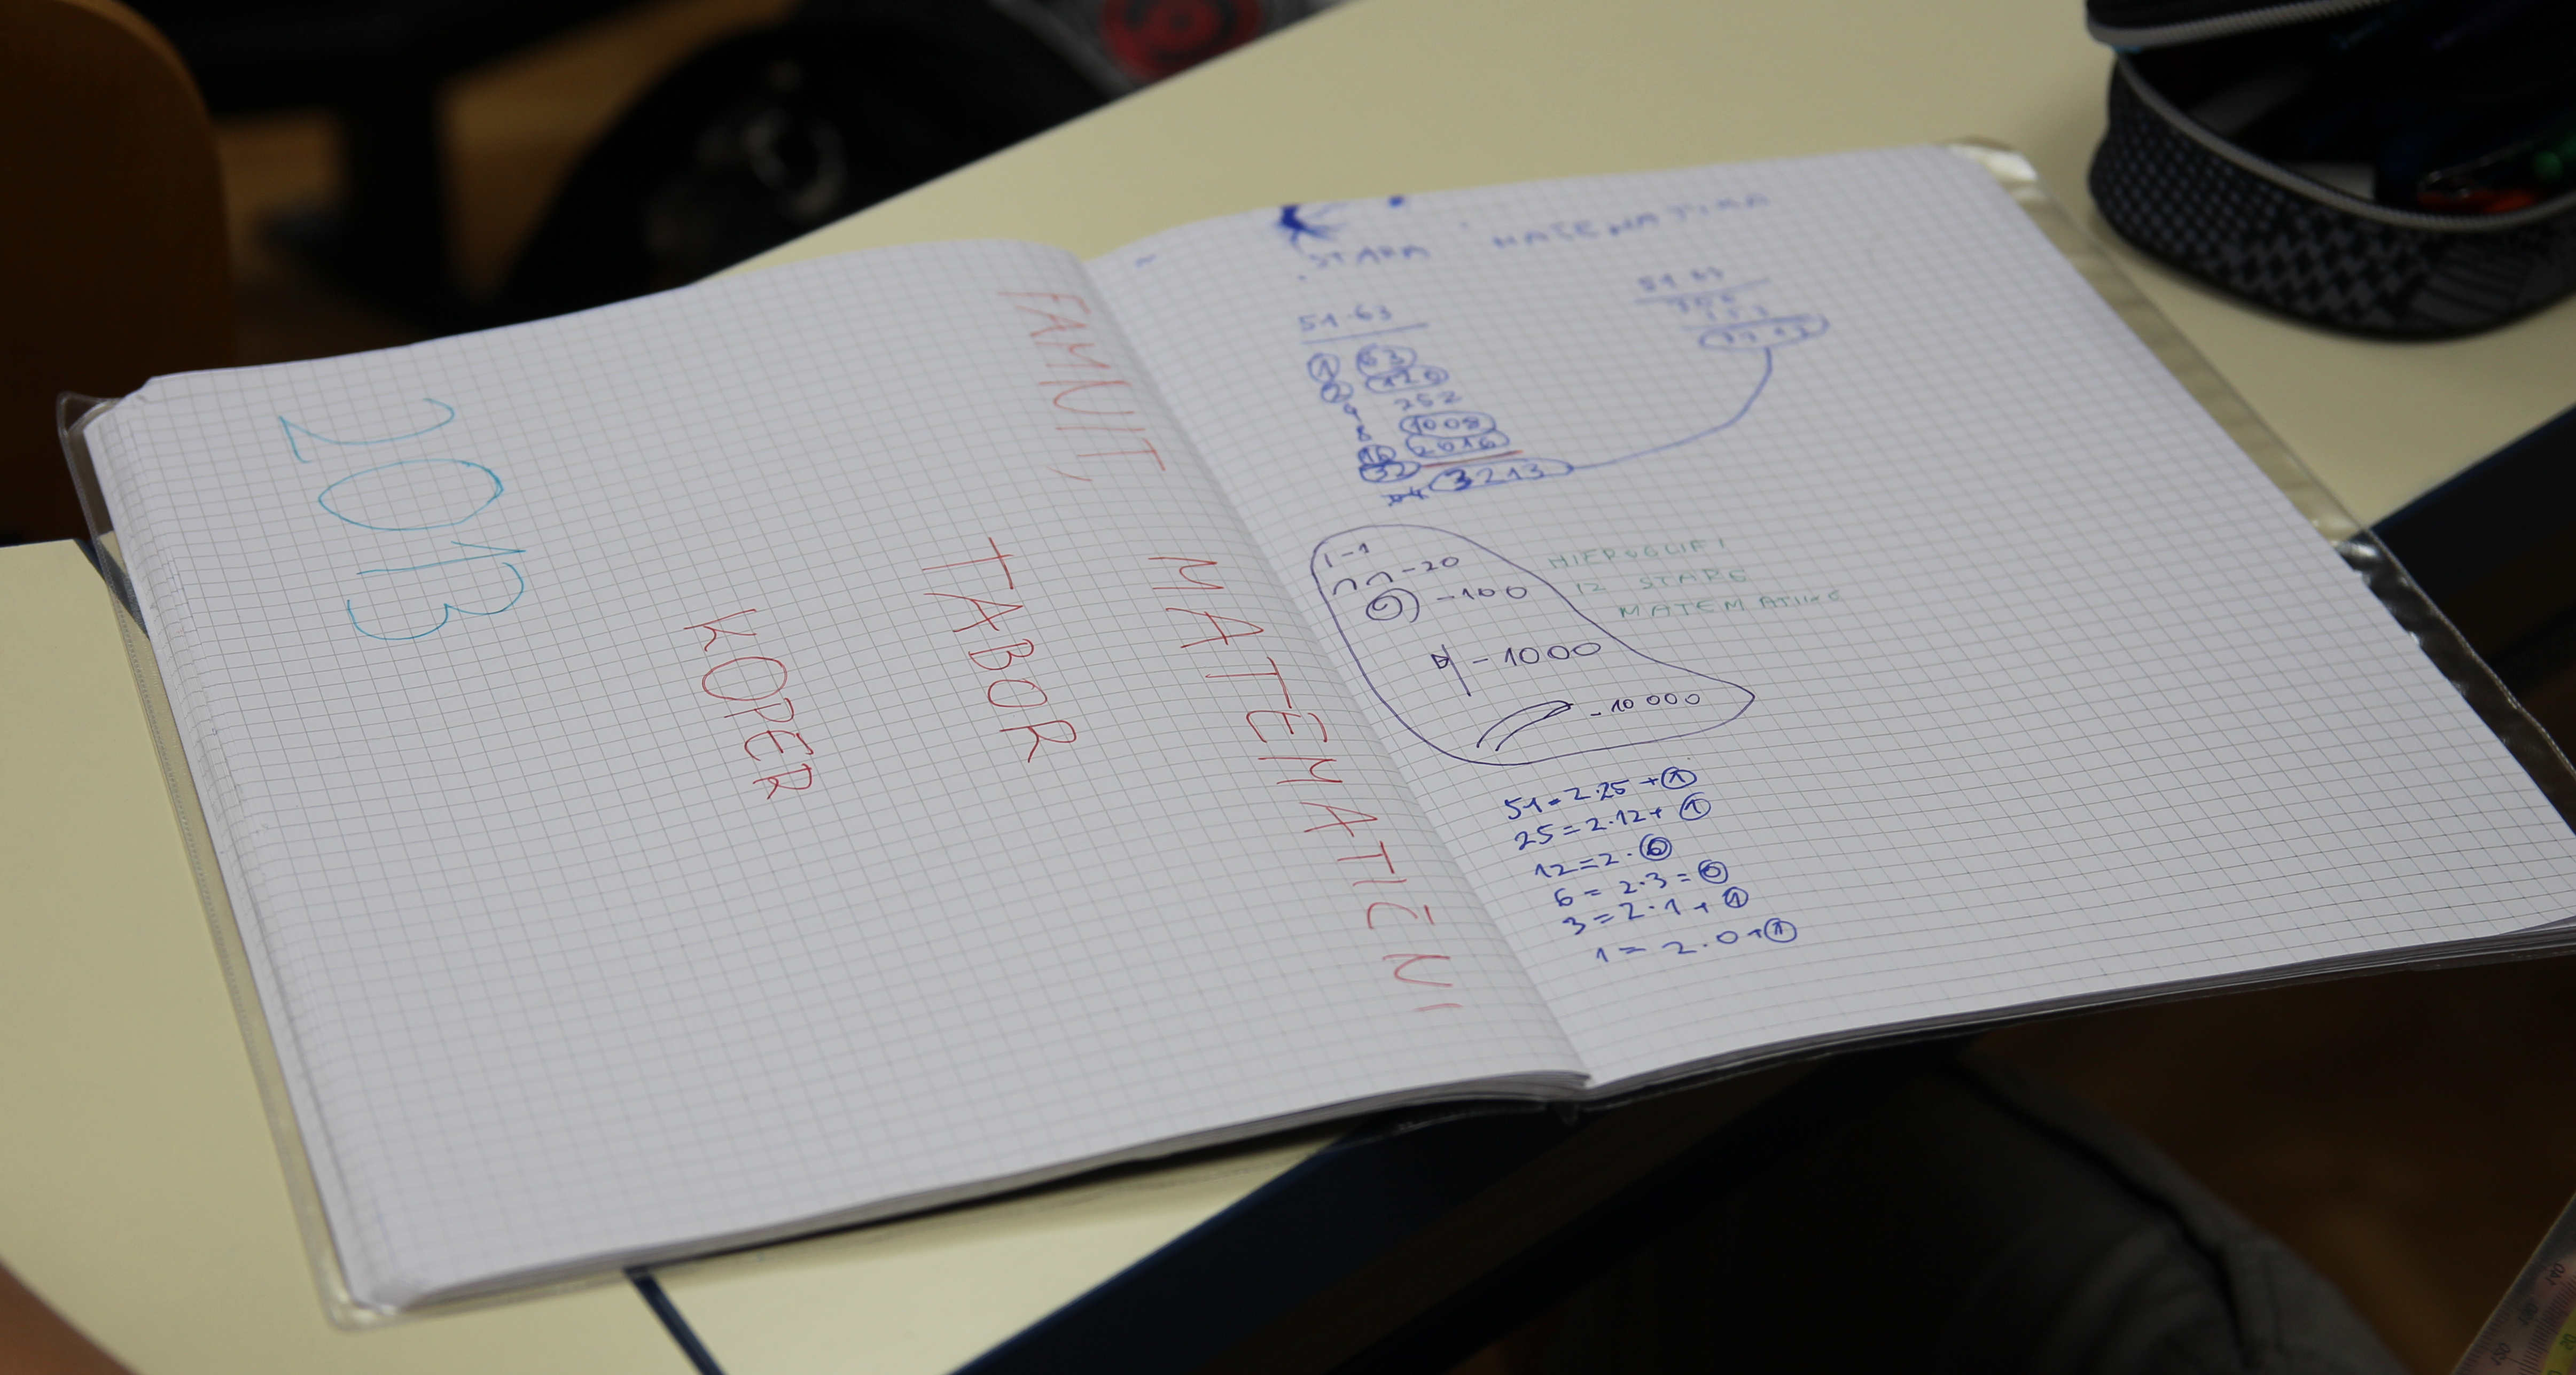 FAMNIT,
MATEMATIČNI
TABOR
KOPER
2013
STARA MATEMATIKA
51·63
1 63
2 126
4 252
8
1008
16 2016
32
64 3213
51·63
3213
I-1
∩∩-20
-100
-1000
-10 000
HIEROGLIFI
IZ STARE
MATEMATIKE
51=2·25+1
25=2·12+1
12=2·6
6=2·3=0
3=2·1+1
1=2·0+1